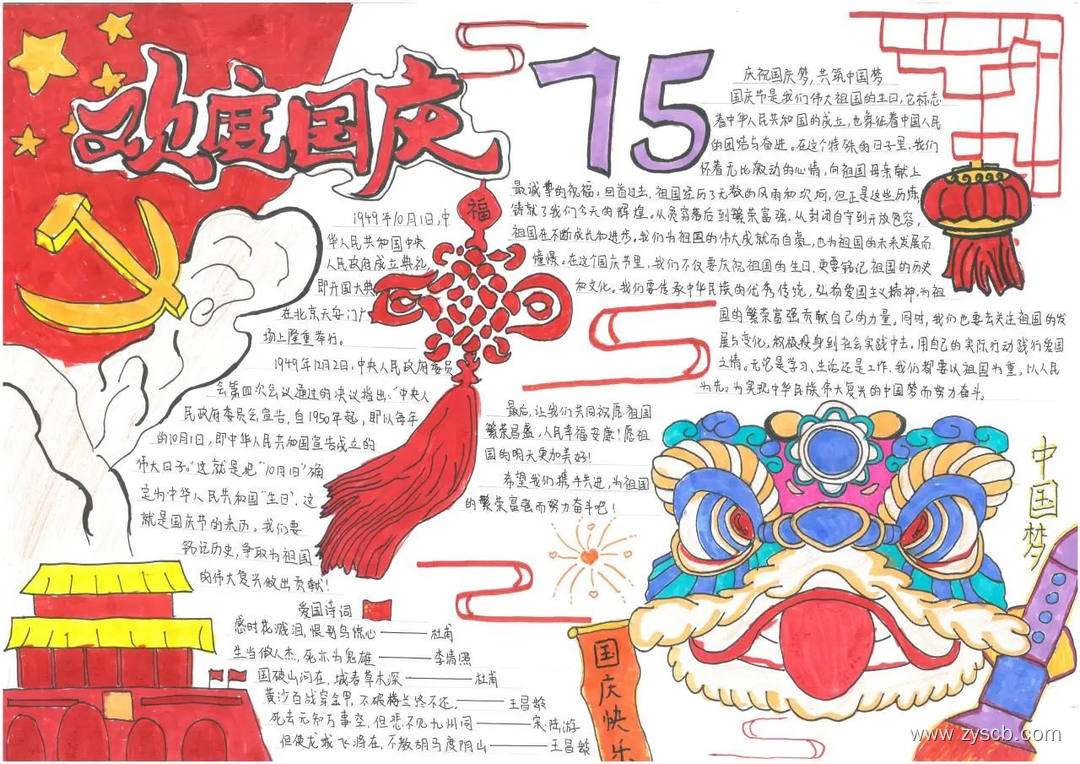 欢度国庆
75
福
1949年10月1日,中
华人民共和国中央
人民政府成立典礼
即开国大典
在北京天安门广
场上隆重举行。
1949年12月2日,中央人民政府委员
会第四次会议通过的决议指出:“中央人
民政府委员会宣告,自1950年起,即以每年
的10月1日,即中华人民共和国宣告成立的
伟大日子。”这就是把“10月1日”确
定为中华人民共和国“生日”,这
就是国庆节的来历。我们要
铭记历史,争取为祖国
的伟大复兴做出贡献!
爱国诗词
感时花溅泪,恨别鸟惊心——杜甫
生当做人杰,死亦为鬼雄——李清照
国破山河在,城春草木深——杜甫
黄沙百战穿金甲,不破楼兰终不还。——王昌龄
死去元知万事空,但悲不见九州同——宋陆游
但使龙城飞将在,不教胡马度阴山——王昌龄
庆祝国庆梦,共筑中国梦
国庆节是我们伟大祖国的生日,它标志
着中华人民共和国的成立,也象征着中国人民
的团结与奋进。在这个特殊的日子里,我们
怀着无比激动的心情,向祖国母亲献上
最诚挚的祝福。回首过去,祖国经历了无数的风雨和坎坷,但正是这些历练
铸就了我们今天的辉煌。从贫穷落后到繁荣富强,从封闭自守到开放包容,
祖国在不断成长和进步。我们为祖国的伟大成就而自豪,也为祖国的未来发展而
憧憬。在这个国庆节里,我们不仅要庆祝祖国的生日,更要铭记祖国的历史
和文化。我们要传承中华民族的优秀传统,弘扬爱国主义精神,为祖
国的繁荣富强贡献自己的力量。同时,我们也要去关注祖国的发
展与变化,积极投身到社会实践中去,用自己的实际行动践行爱国
之情。无论是学习、生活还是工作,我们都要以祖国为重,以人民
为先,为实现中华民族伟大复兴的中国梦而努力奋斗。
最后,让我们共同祝愿祖国
繁荣昌盛,人民幸福安康!愿祖
国的明天更加美好!
希望我们携手共进,为祖国
的繁荣富强而努力奋斗吧!
中国梦
国庆快乐
www.zyscb.com